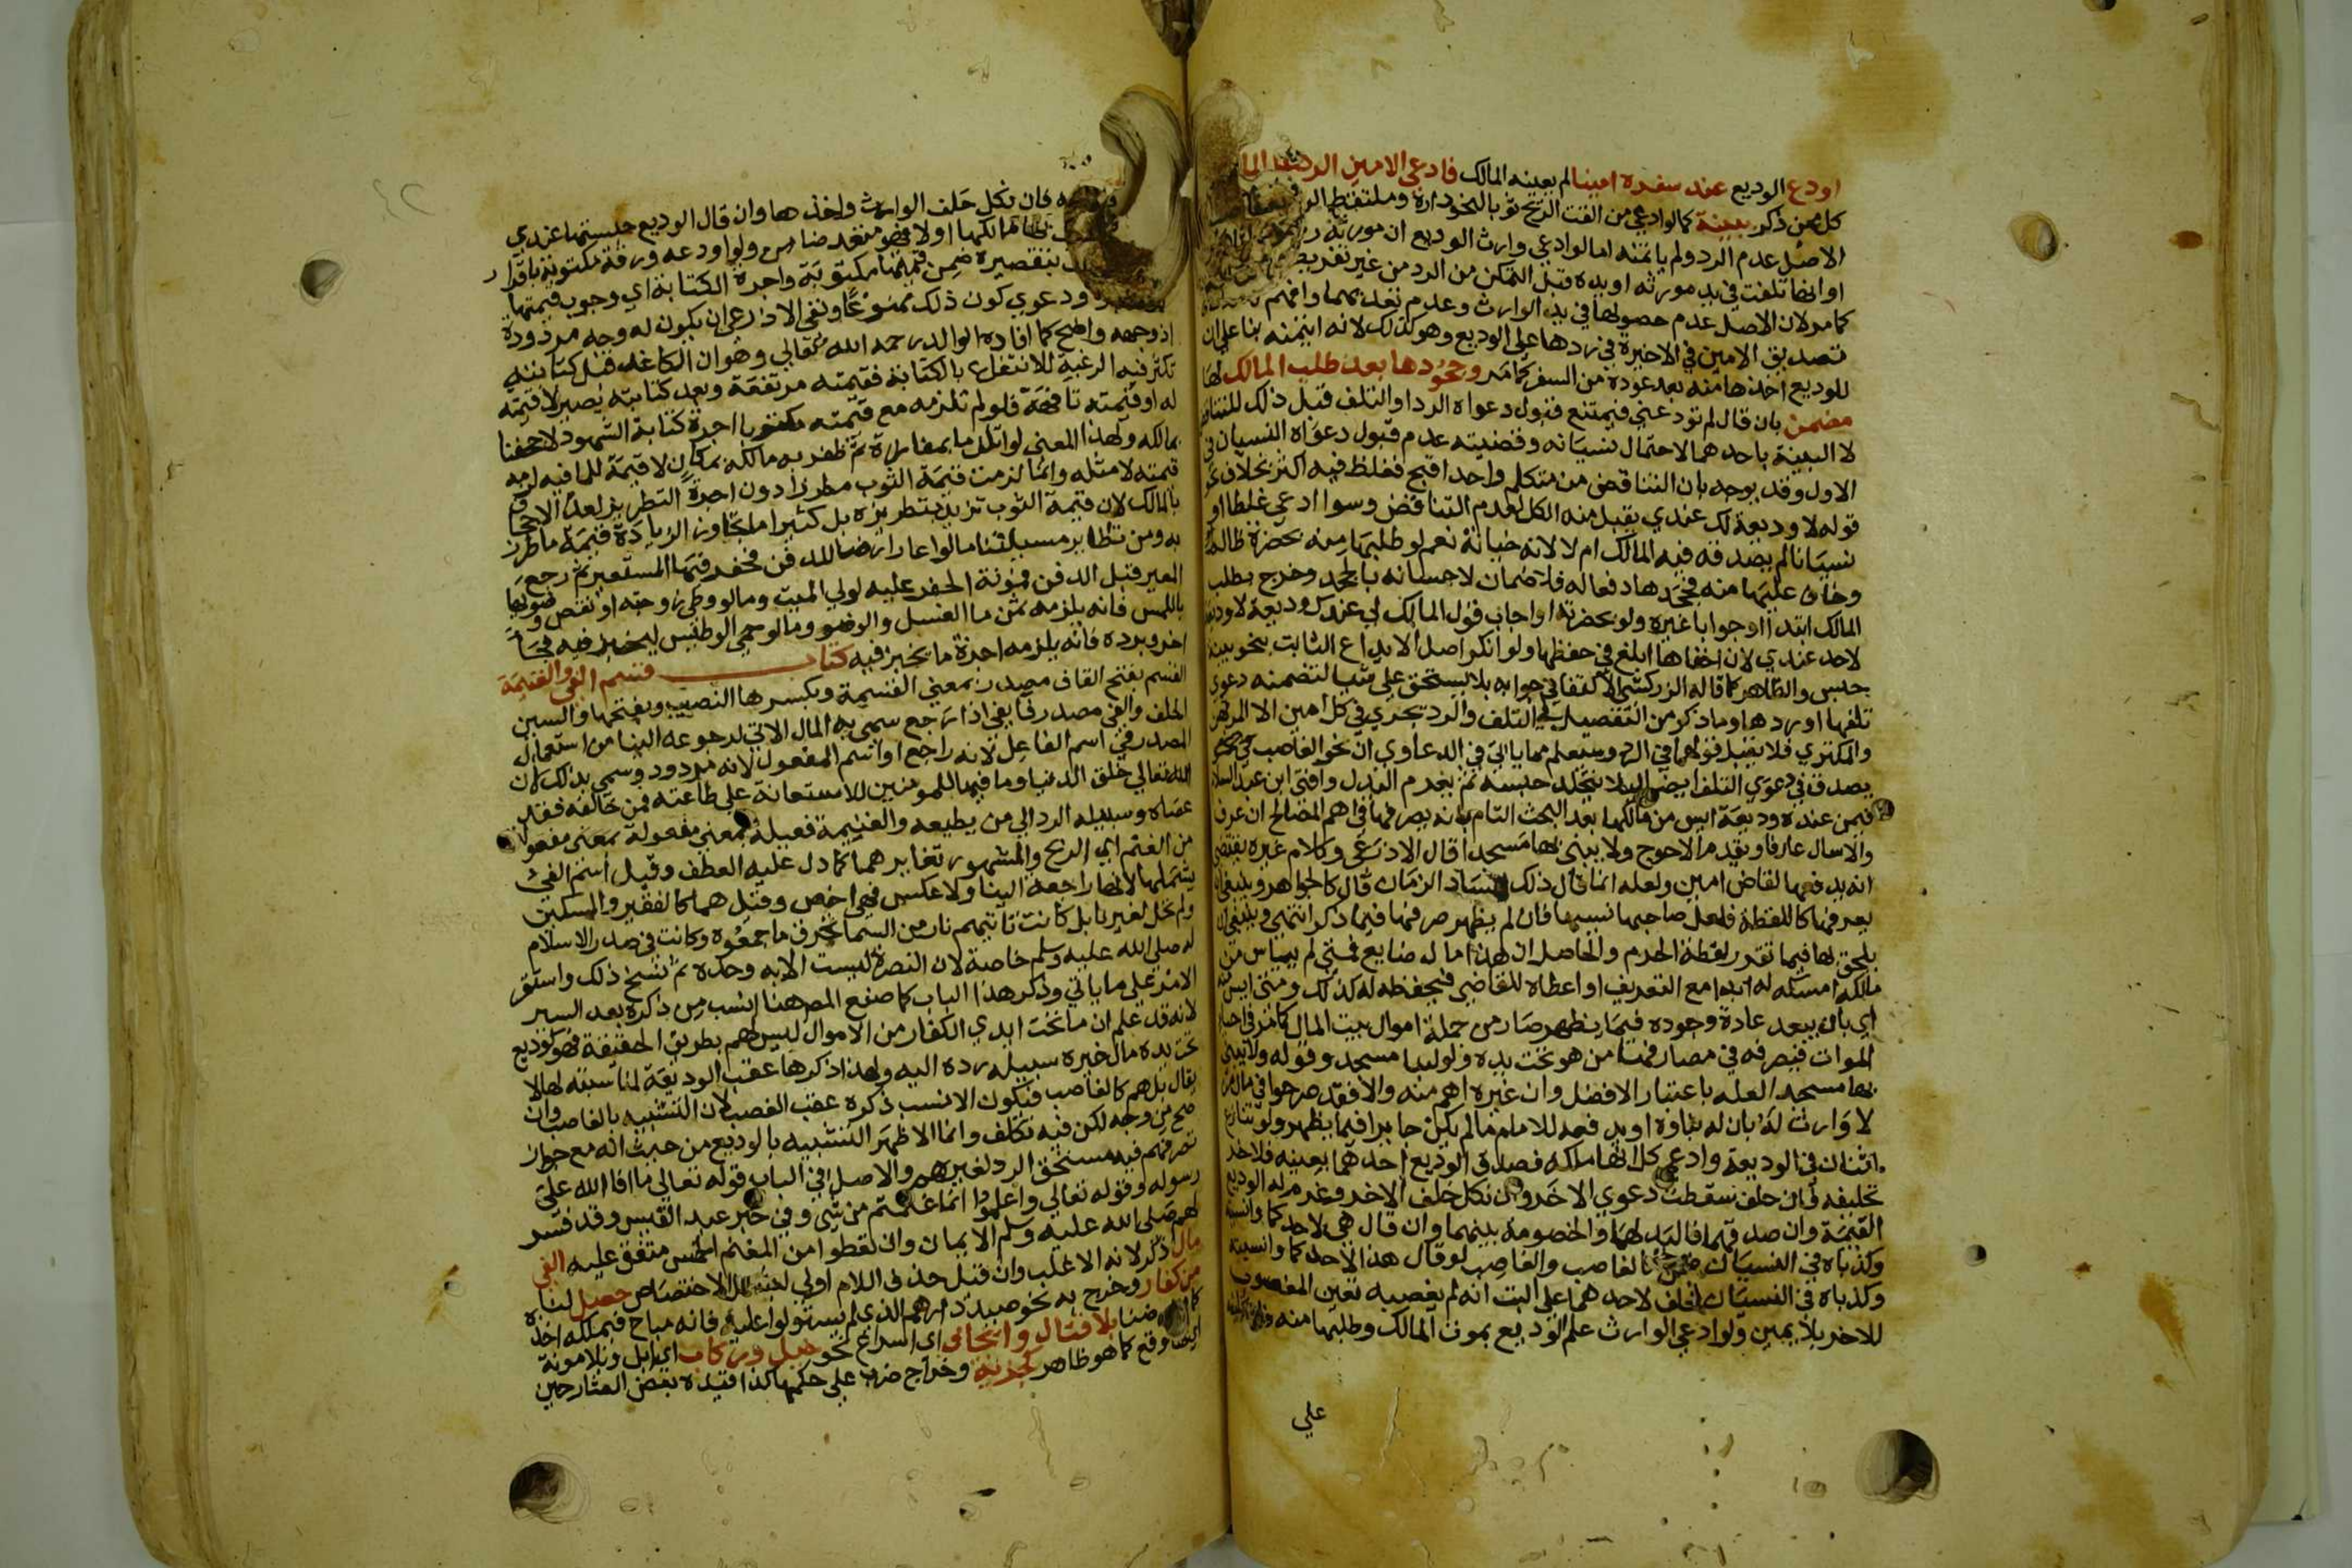 اودع الوديع عند سفره امينا لم يعينه المالك فادعى الامين الرد على الما
كل ممن ذكر ببينة كما لو ادعى من القت الريح ثوبا نحو داره وملتقط الرد
الاصل عدم الرد ولم ياتمنه اما لو ادعى وارث الوديع ان مورثه رد
او انها تلفت في يد مورثه او يده قبل التمكن من الرد من غير تفريط
كما مر لان الاصل عدم حصولها في يد الوارث وعدم تعديهما وافهم
تصديق الامين في الاخيرة في ردها على الوديع وهو كذلك لانه ايتمنه بنا على ان
للوديع اخذها منه بعد عوده من السفر كما مر وجحودها بعد طلب المالك لها
مضمن بان قال لم تودعني فيمتنع قبول دعواه الرد او التلف قبل ذلك للتناقض
لا البينة باحدهما لاحتمال نسيانه وقضيته عدم قبول دعواه النسيان في
الاول وقد يوجه بان التناقض من متكلم واحد اقبح فغلظ فيه اكثر بخلاف نحو
قوله لا وديعة لك عندي يقبل منه الكل لعدم التناقض وسوا ادعى غلطا او
نسيانا لم يصدقه فيه المالك ام لا لانه خيانة نعم لو طلبها منه بحضرة ظالم
وخاف عليها منه فجحدها دفعا له فلا ضمان لاحسانه بالجحد وخرج بطلب
المالك ابتدا او جوابا غيره ولو بحضرته او اجاب قول المالك لي عندك وديعة لا وديعة
لاحد عندي لان اخفاها ابلغ في حفظها ولو انكر اصل الايداع الثابت بنحو بينة
حبس والظاهر كما قاله الزركشي الاكتفا في جوابه بلا يستحق علي شيا لتضمنه دعوى
تلفها او ردها وما ذكر من التفصيل في التلف والرد يجري في كل امين الا المرتهن
والمكتري فلا يقبل قولهما في الرد وسيعلم مما ياتي في الدعاوي ان نحو الغاصب
يصدق في دعوى التلف ايضا لئلا يتخلد حبسه ثم يغرم البدل وافتى ابن عبد السلام
فيمن عنده وديعة ايس من مالكها بعد البحث التام بانه يصرفها في اهم المصالح ان عرف
والا سال عارفا ويقدم الاحوج ولا يبني بها مسجدا قال الاذرعي وكلام غيره يقتضي
انه يدفعها لقاض امين ولعله انما قال ذلك لفساد الزمان قال كالجواهر وينبغي ان
يعرفها كاللقطة فلعل صاحبها نسيها فان لم يظهر صرفها فيما ذكر انتهى وينبغي ان
يلحق بها فيما تقدر لقطة الحرم والحاصل ان هذا مال ضايع فمتى لم ييياس من
مالكه امسكه له ابدا مع التعريف او اعطاه للقاضي فيحفظه له كذلك ومتى ايس
اي بان يبعد عادة وجوده فيما يظهر صار من جملة اموال بيت المال كما مر في احيا
الموات فيصرفه في مصارفها من هو تحت يده ولو لبنا مسجد وقوله ولا يبني
بها مسجدا لعله باعتبار الافضل وان غيره اهم منه والا فقد صرحوا في مال من
لا وارث له بان له بناوه او يدفعه للامام ما لم يكن جايرا فيما يظهر ولو تنازع
اثنان في الوديعة وادعى كل انها ملكه فصدق الوديع احدهما بعينه فللاخر
تحليفه فان حلف سقطت دعوى الاخر وان نكل حلف الاخر وغرم له الوديع
القيمة وان صدقهما فاليد لهما والخصومة بينهما وان قال هي لاحدكما وانسيته
وكذباه في النسيان ضمن كالغاصب والغاصب لو قال هذا لاحدكما وانسيته
وكذباه في النسيان فحلف لاحدهما على البت انه لم يغصبه تعين المغصوب
للاخر بلا يمين ولو ادعى الوارث علم الوديع بموت المالك وطلبها منه
علي
فان نكل حلف الوارث واخذها وان قال الوديع حبستها عندي
مالكها او لا فهو متعد ضامن ولو اودعه ورقة مكتوبة باقرار
بتقصيره ضمن قيمتها مكتوبة واجرة الكتابة اي وجوب قيمتها
ودعوى كون ذلك ممنوعا ونفي الاذرعي ان يكون له وجه مردودة
اذ وجهه واضح كما افاده الوالد رحمه الله تعالى وهو ان الكاغد قبل كتابته
تكثر فيه الرغبة للانتفاع بالكتابة فقيمته مرتفعة وبعد كتابته يصير لا قيمة
له او قيمته تافهة فلو لم نلزمه مع قيمته مكتوبا اجرة كتابة الشهود لاجحفنا
بمالكه ولهذا المعنى لو اتلف ما بمفازة ثم ظفر به مالكه بمكان لا قيمة للما فيه لزمه
قيمته لا مثله وانما لزمت قيمة الثوب مطرزا دون اجرة التطريز لعدم الاجحاف
بالمالك لان قيمة الثوب تزيد بتطريزه بل كثيرا ما يجاوز الزيادة قيمة ما طرز
به ومن نظاير مسيلتنا ما لو اعار ارضا لدفن فحفر فيها المستعير ثم رجع
المعير قبل الدفن فمونة الحفر عليه لولي الميت وما لو وطى زوجته او نقض وضوها
باللمس فانه يلزمه ثمن ما الغسل والوضو وما لو حمي الوطيس ليخبز فيه فجا
اخر وبرده فانه يلزمه اجرة ما يخبز فيه كتاب قسم الفي والغنيمة
القسم بفتح القاف مصدر بمعنى القسمة وبكسرها النصيب وبفتحها والسين
الحلف والفي مصدر فا يفي اذا رجع سمي به المال الاتي لرجوعه الينا من استعمال
المصدر في اسم الفاعل لانه راجع او اسم المفعول لانه مردود وسمي بذلك لان
الله تعالى خلق الدنيا وما فيها للمومنين للاستعانة على طاعته فمن خالفه فقد
عصاه وسبيله الرد الى من يطيعه والغنيمة فعيلة بمعنى مفعولة بمعنى مفعول
من الغنم اي الربح والمشهور تغايرهما كما دل عليه العطف وقيل اسم الفي
يشملها لانها راجعة الينا ولا عكس فهي اخص وقيل هما كالفقير والمسكين
ولم تحل لغيرنا بل كانت تاتيهم نار من السما تحرق ما جمعوه وكانت في صدر الاسلام
له صلى الله عليه وسلم خاصة لان النصرة ليست الا به وحده ثم نسخ ذلك واستقر
الامر على ما ياتي وذكر هذا الباب كما صنع المص هنا انسب من ذكره بعد السير
لانه قد علم ان ما تحت ايدي الكفار من الاموال ليس لهم بطريق الحقيقة فهو كوديع
تحت يده مال خيره سبيله رده اليه ولهذا ذكرها عقب الوديعة لمناسبته لها لا
يقال بل هم كالغاصب فيكون الانسب ذكره عقب الغصب لان التشبيه بالغاصب وان
صح من وجه لكن فيه تكلف وانما الاظهر التشبيه بالوديع من حيث انه مع جواز
تصرفهم فيه مستحق الرد لغيرهم والاصل في الباب قوله تعالى ما افا الله على
رسوله وقوله تعالى واعلموا انما غنمتم من شي وفي خبر عبد القيس وقد فسر
لهم صلى الله عليه وسلم الايمان وان تعطوا من المغنم الخمس متفق عليه الفي
مال ذكر لانه الاغلب وان قيل حذف اللام اولى ليشمل الاختصاص حصل لنا
من كفار وخرج به نحو صيد دارهم الذي لم يستولوا عليه فانه مباح فيملكه اخذه
ضمنا بلا قتال وايجاف اي اسراع نحو خيل وركاب اي ابل وبلا مونة
وقع كما هو ظاهر كجزية وخراج ضرب على حكمها كذا قيده بعض الشارحين